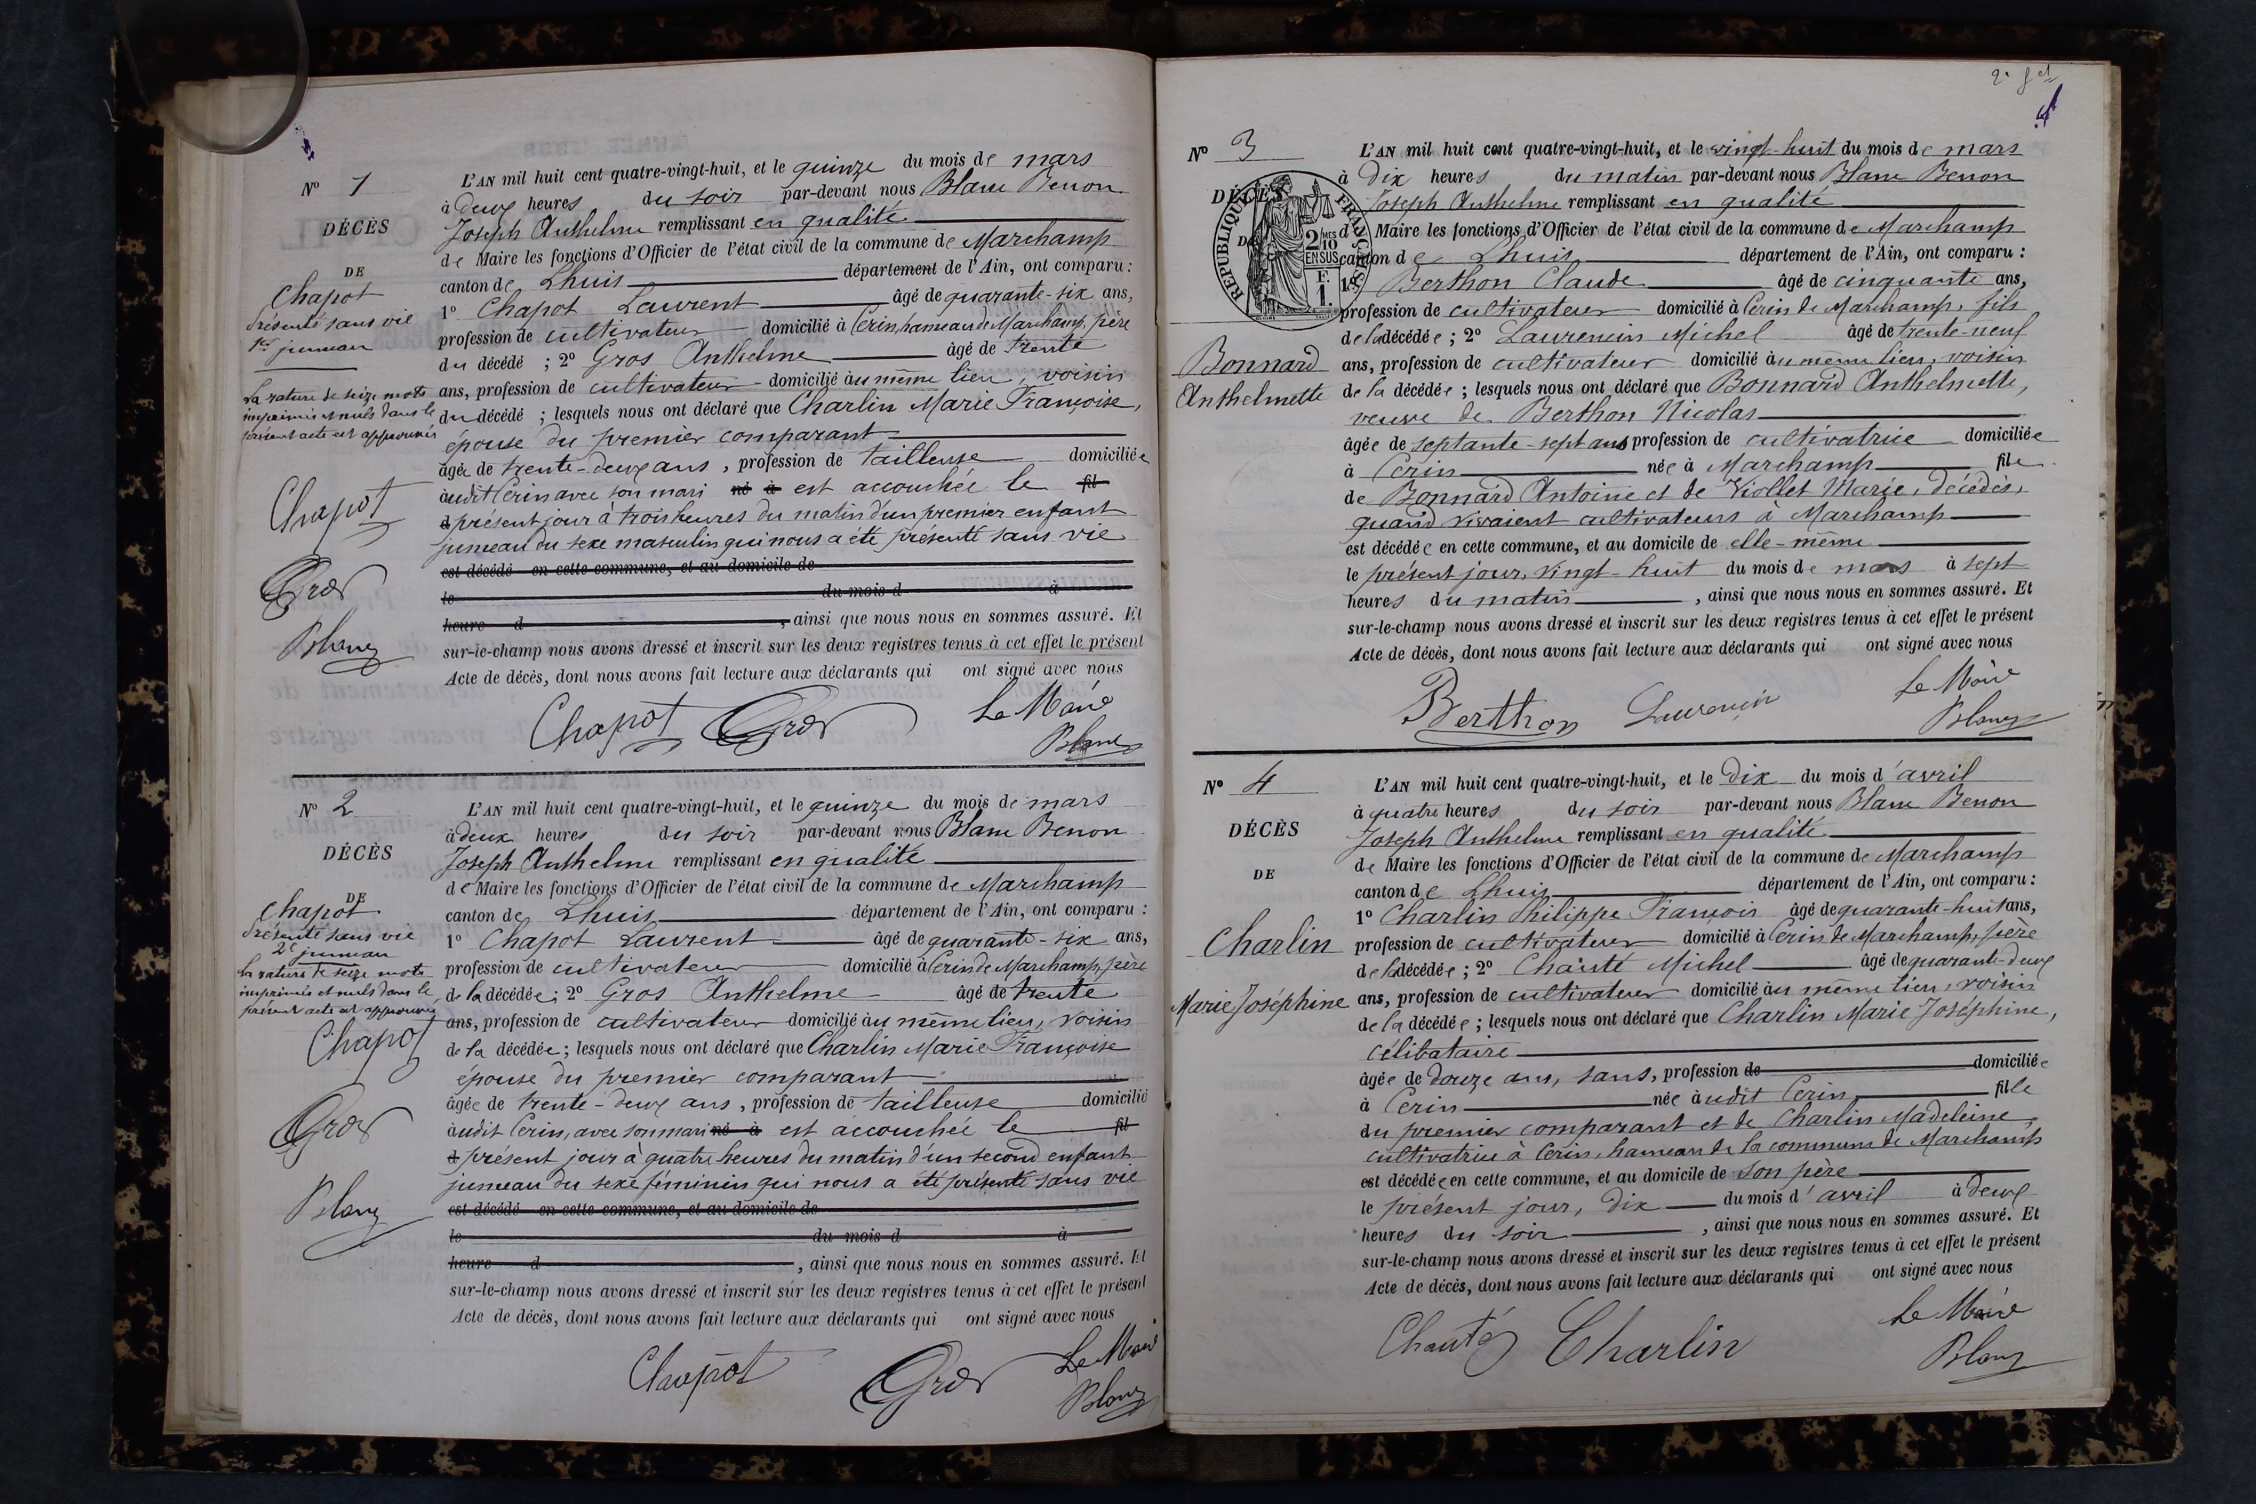 N° 1
DÉCÈS
DE
Chapot
Présenté sans vie
1er jumeau
La rature de seize mots
imprimés et nuls dans le
présent acte est approuvée
Chapot
Gros
Blanc
L'AN mil huit cent quatre-vingt-huit, et le quinze du mois de mars
à deux heures du soir par-devant nous Blanc Benon
Joseph Anthelme remplissant en qualité
de Maire les fonctions d'Officier de l'état civil de la commune de Marchamp
canton de Lhuis département de l'Ain, ont comparu :
1° Chapot Laurent âgé de quarante-six ans,
profession de cultivateur domicilié à Cerin, hameau de Marchamp, père
du décédé ; 2° Gros Anthelme âgé de trente
ans, profession de cultivateur domicilié au même lieu, voisin
du décédé ; lesquels nous ont déclaré que Charlin Marie Françoise,
épouse du premier comparant
âgée de trente-deux ans, profession de tailleuse domiciliée
audit Cerin avec son mari né à est accouchée le fil
d présent jour à trois heures du matin d'un premier enfant
jumeau du sexe masculin qui nous a été présenté sans vie
est décédé en cette commune, et au domicile de
le du mois d à
heure d , ainsi que nous nous en sommes assuré. Et
sur-le-champ nous avons dressé et inscrit sur les deux registres tenus à cet effet le présent
Acte de décès, dont nous avons fait lecture aux déclarants qui ont signé avec nous
Chapot Gros Le Maire
Blanc
N° 2
DÉCÈS
DE
Chapot
Présenté sans vie
2e jumeau
La rature de seize mots
imprimés et nuls dans le
présent acte est approuvée
Chapot
Gros
Blanc
L'AN mil huit cent quatre-vingt-huit, et le quinze du mois de mars
à deux heures du soir par-devant nous Blanc Benon
Joseph Anthelme remplissant en qualité
de Maire les fonctions d'Officier de l'état civil de la commune de Marchamp
canton de Lhuis département de l'Ain, ont comparu :
1° Chapot Laurent âgé de quarante-six ans,
profession de cultivateur domicilié à Cerin de Marchamp, père
de la décédée ; 2° Gros Anthelme âgé de trente
ans, profession de cultivateur domicilié au même lieu, voisin
de la décédée ; lesquels nous ont déclaré que Charlin Marie Françoise
épouse du premier comparant
âgée de trente-deux ans, profession de tailleuse domicilié
audit Cerin, avec son mari né à est accouchée le fil
d présent jour à quatre heures du matin d'un second enfant
jumeau du sexe féminin qui nous a été présenté sans vie
est décédé en cette commune, et au domicile de
le du mois d à
heure d , ainsi que nous nous en sommes assuré. Et
sur-le-champ nous avons dressé et inscrit sur les deux registres tenus à cet effet le présent
Acte de décès, dont nous avons fait lecture aux déclarants qui ont signé avec nous
Chapot Gros Le Maire
Blanc
N° 3
DÉCÈS
RÉPUBLIQUE FRANÇAISE
2 MES
10
EN SUS
F.
1.
Bonnard
Anthelmette
L'AN mil huit cent quatre-vingt-huit, et le vingt-huit du mois de mars
à dix heures du matin par-devant nous Blanc Benon
Joseph Anthelme remplissant en qualité
d Maire les fonctions d'Officier de l'état civil de la commune de Marchamp
canton de Lhuis département de l'Ain, ont comparu :
1° Berthon Claude âgé de cinquante ans,
profession de cultivateur domicilié à Cerin de Marchamp, fils
de la décédée ; 2° Laurencin Michel âgé de trente-neuf
ans, profession de cultivateur domicilié au même lieu, voisin
de la décédée ; lesquels nous ont déclaré que Bonnard Anthelmette,
veuve de Berthon Nicolas
âgée de septante-sept ans profession de cultivatrice domiciliée
à Cerin née à Marchamp fille
de Bonnard Antoine et de Viollet Marie, décédés,
quand vivaient cultivateurs à Marchamp
est décédée en cette commune, et au domicile de elle-même
le présent jour, vingt-huit du mois de mars à sept
heures du matin , ainsi que nous nous en sommes assuré. Et
sur-le-champ nous avons dressé et inscrit sur les deux registres tenus à cet effet le présent
Acte de décès, dont nous avons fait lecture aux déclarants qui ont signé avec nous
Berthon Laurencin Le Maire
Blanc
N° 4
DÉCÈS
DE
Charlin
Marie Joséphine
L'AN mil huit cent quatre-vingt-huit, et le dix du mois d'avril
à quatre heures du soir par-devant nous Blanc Benon
Joseph Anthelme remplissant en qualité
de Maire les fonctions d'Officier de l'état civil de la commune de Marchamp
canton de Lhuis département de l'Ain, ont comparu :
1° Charlin Philippe François âgé de quarante-huit ans,
profession de cultivateur domicilié à Cerin de Marchamp, père
de la décédée ; 2° Chanté Michel âgé de quarante-deux
ans, profession de cultivateur domicilié au même lieu, voisin
de la décédée ; lesquels nous ont déclaré que Charlin Marie Joséphine,
célibataire
âgée de douze ans, sans, profession de domiciliée
à Cerin née audit Cerin, fille
du premier comparant et de Charlin Madeleine,
cultivatrice à Cerin, hameau de la commune de Marchamp
est décédée en cette commune, et au domicile de son père
le présent jour, dix du mois d'avril à deux
heures du soir , ainsi que nous nous en sommes assuré. Et
sur-le-champ nous avons dressé et inscrit sur les deux registres tenus à cet effet le présent
Acte de décès, dont nous avons fait lecture aux déclarants qui ont signé avec nous
Chanté Charlin Le Maire
Blanc